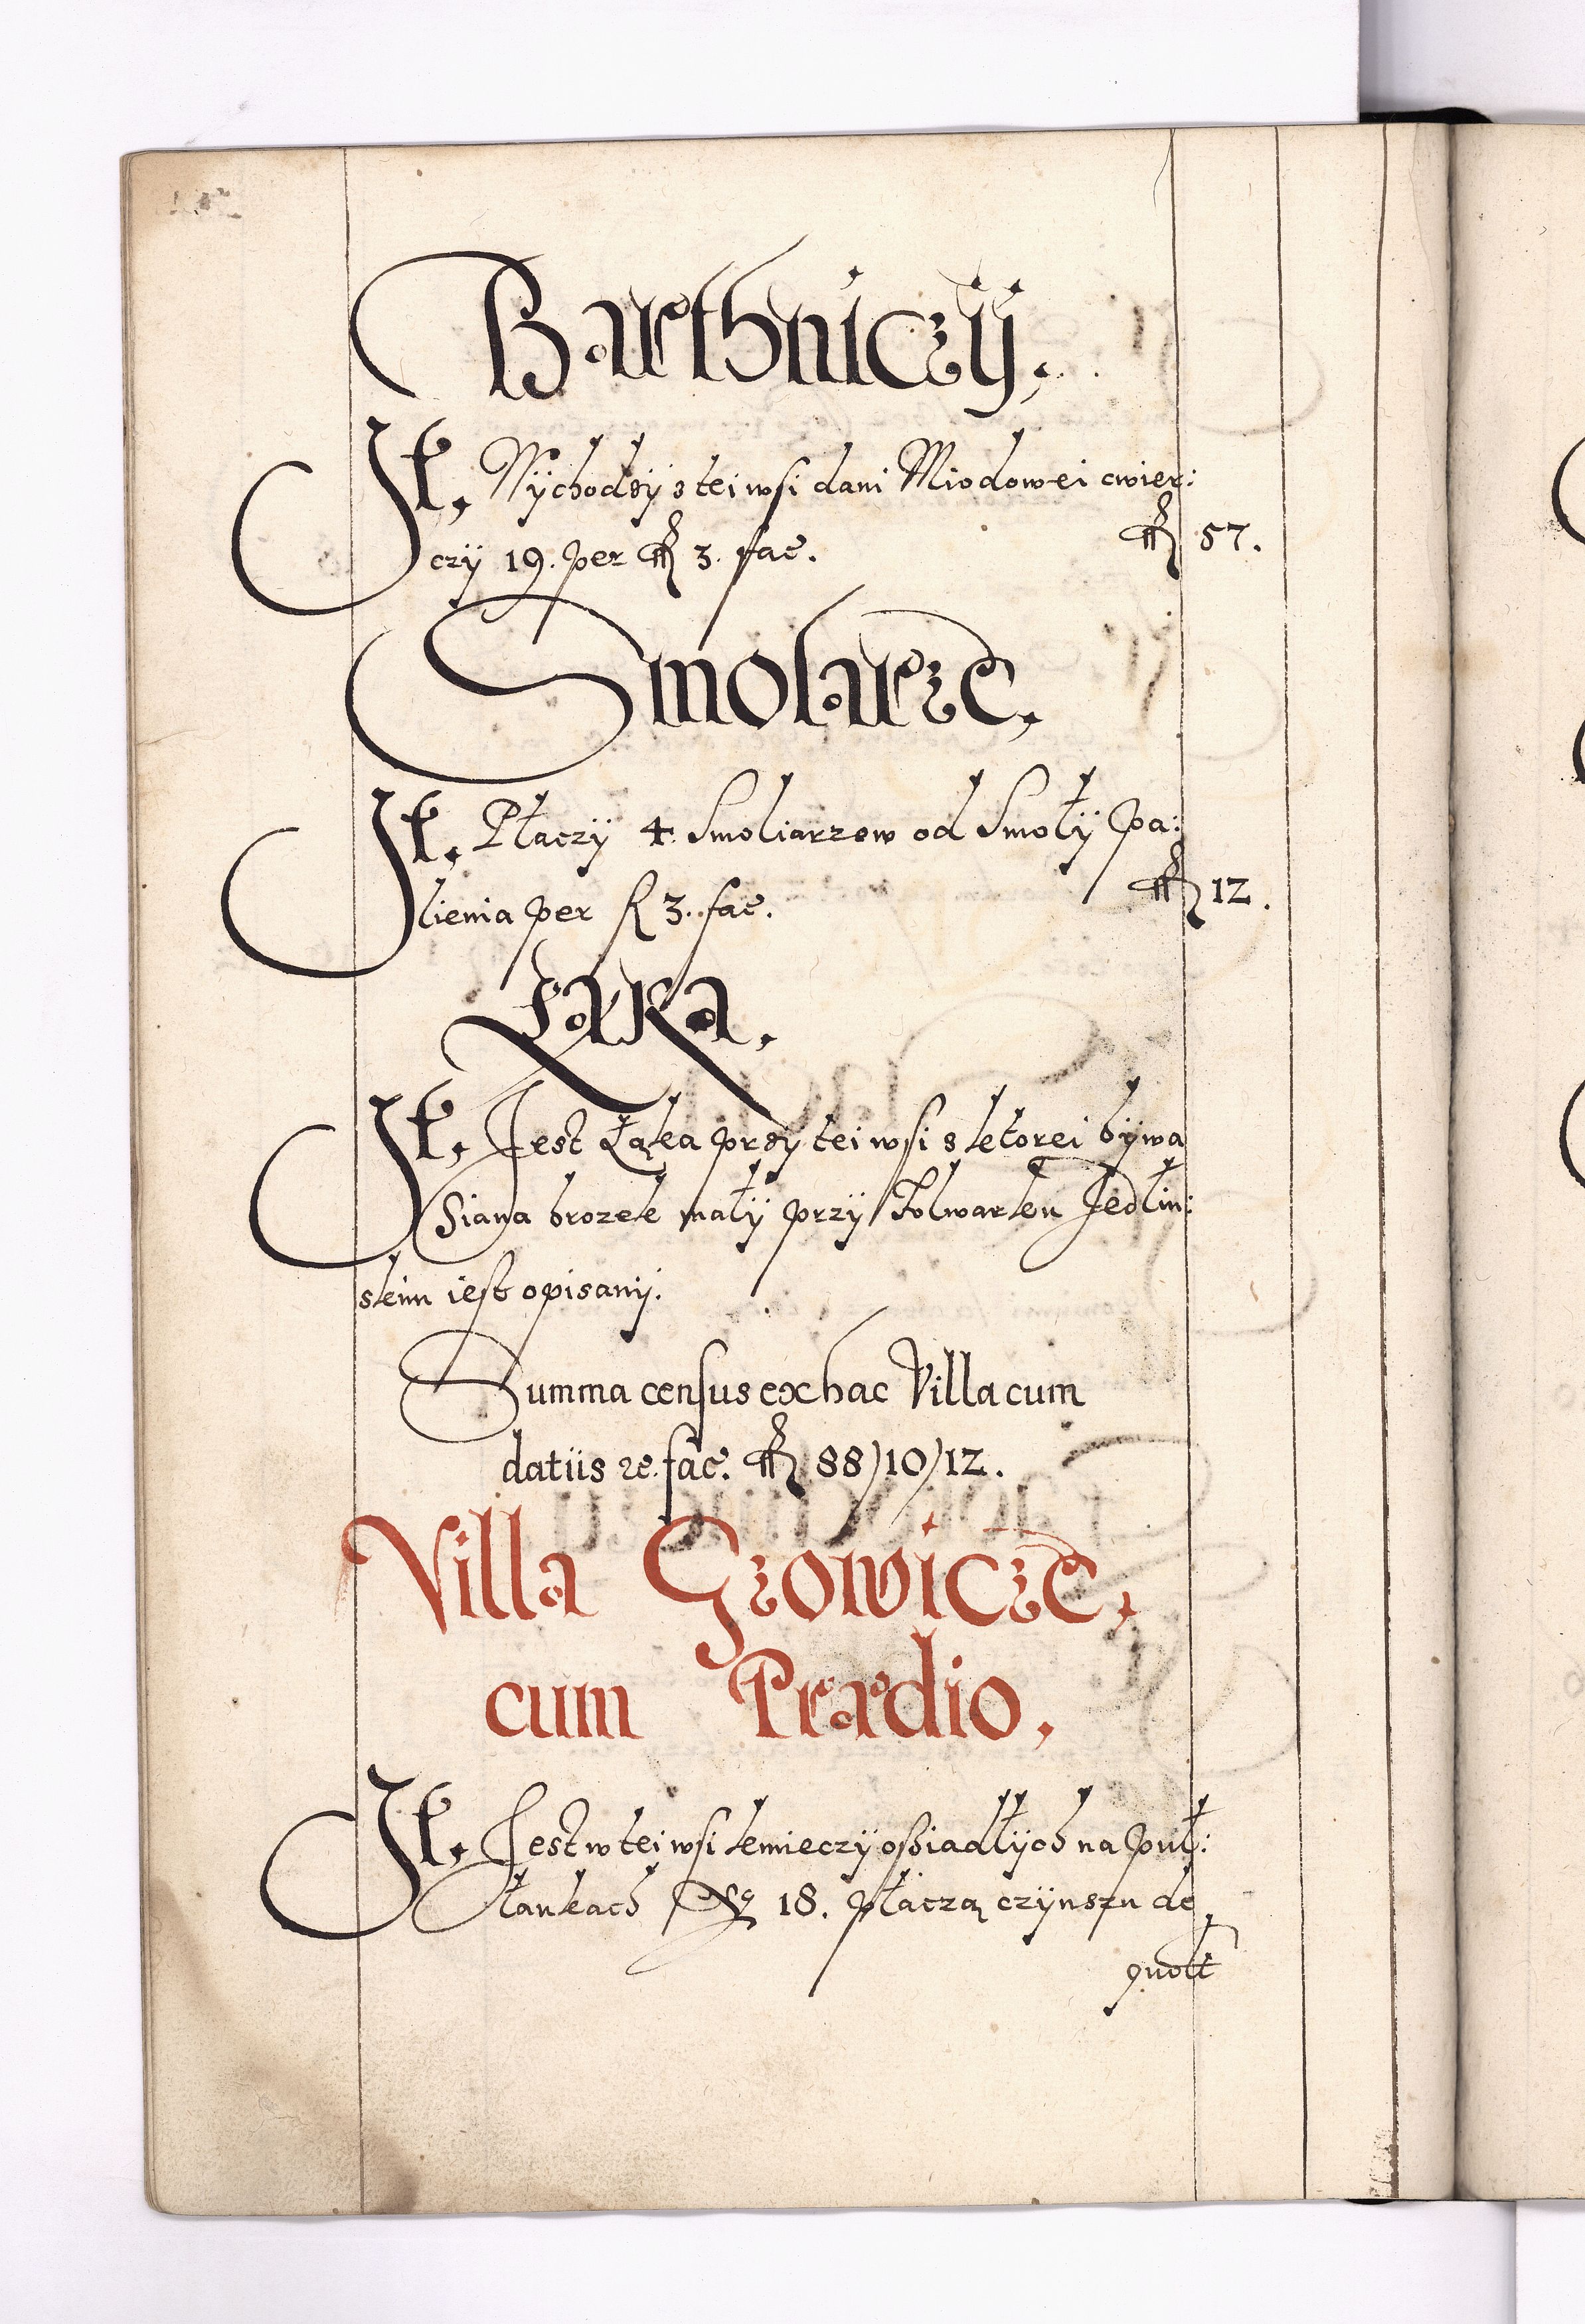 Barthniczÿ,
It, Wÿchodzÿ s tei wsi dani Miodowei cwier:
czÿ 19. per fl 3. fac. fl 57.
Smolarze,
It, Płaczÿ 4 Smoliarzow od Smołÿ pa:
lienia per fl 3. fac. fl 12.
Łąka.
It, Jest Łąka przÿ tei wsi s ktorei bÿwa
Siana brozek małÿ przÿ Folwarku Jedlin:
skim iest opisanÿ.
Summa census ex hac Villa cum
datiis &c. fac. fl 88/10/12.
Villa Gzowicze,
cum Prædio,
It, Jest w tei wsi kmieczÿ oßiadłÿch na puł:
łankach 18. płaczą czÿnszu de
quolt